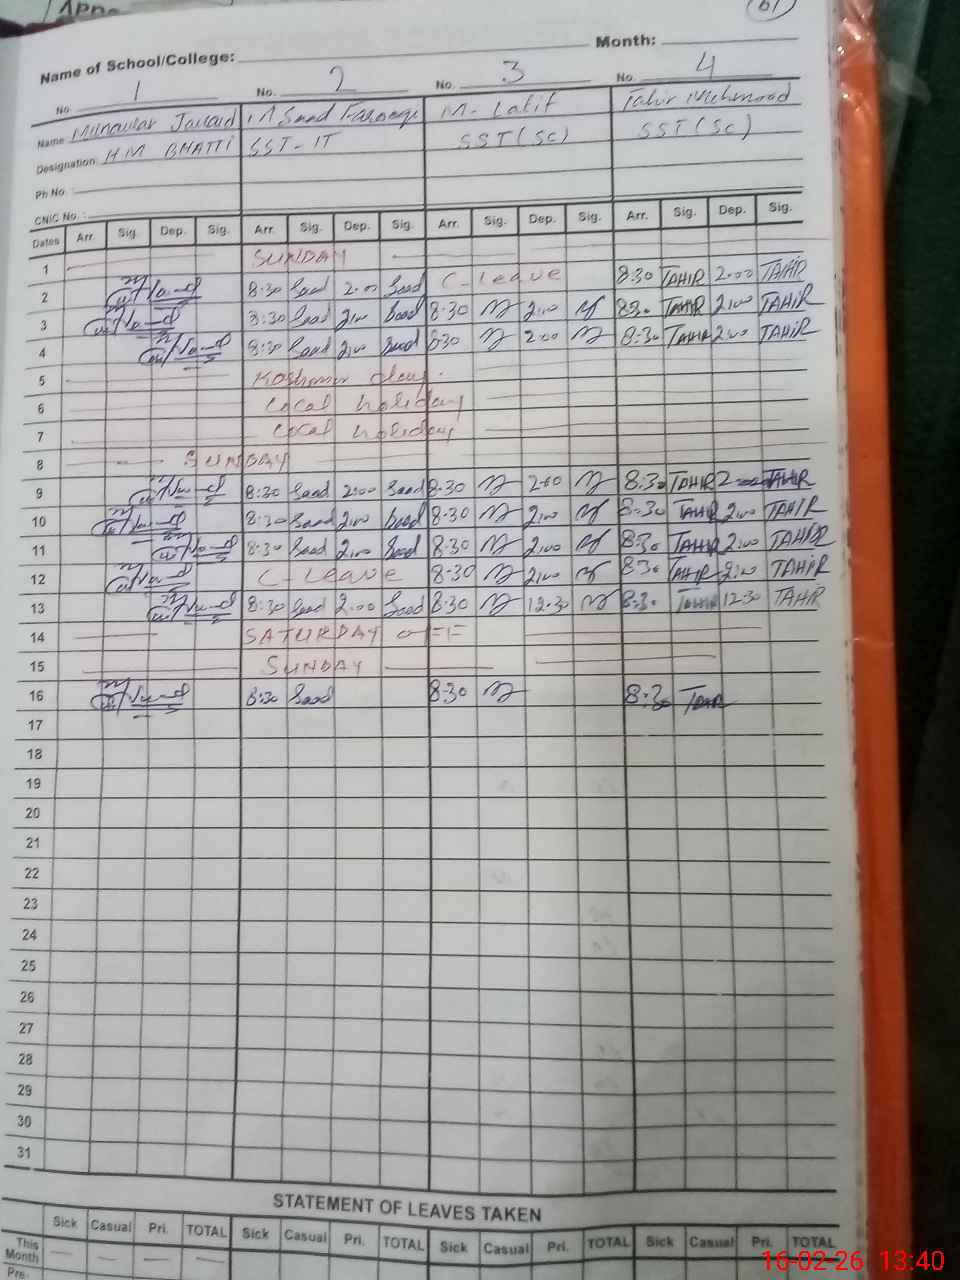 61
Name of School/College: Month:
No. 1 No. 2 No. 3 No. 4
Name Munawar Javaid M Saad Farooqi M- Latif Tahir Mehmood
Designation: HM BHATTI SST-IT SST (SC) SST (SC)
Ph No.
CNIC No. :
Dates Arr. Sig. Dep. Sig. Arr. Sig. Dep. Sig. Arr. Sig. Dep. Sig. Arr. Sig. Dep. Sig.
1 SUNDAY
2 8:30 Saad 2:00 Saad C-Leave 8:30 TAHIR 2:00 TAHIR
3 8:30 Saad 2:00 Saad 8:30 2:00 8:30 TAHIR 2:00 TAHIR
4 8:30 Saad 2:00 Saad 8:30 2:00 8:30 TAHIR 2:00 TAHIR
5 Kashmir day.
6 Local holiday
7 Local holiday
8 SUNDAY
9 8:30 Saad 2:00 Saad 8:30 2:00 8:30 TAHIR TAHIR
10 8:30 Saad 2:00 Saad 8:30 2:00 8:30 TAHIR 2:00 TAHIR
11 8:30 Saad 2:00 Saad 8:30 2:00 8:30 TAHIR 2:00 TAHIR
12 C-Leave 8:30 2:00 8:30 TAHIR 2:00 TAHIR
13 8:30 Saad 2:00 Saad 8:30 12:30 8:30 TAHIR 12:30 TAHIR
14 SATURDAY OFF
15 SUNDAY
16 8:30 Saad 8:30 8:30 TAHIR
17
18
19
20
21
22
23
24
25
26
27
28
29
30
31
STATEMENT OF LEAVES TAKEN
Sick Casual Pri. TOTAL Sick Casual Pri. TOTAL Sick Casual Pri. TOTAL Sick Casual Pri. TOTAL
This Month
Pre-
16-02-26 13:40